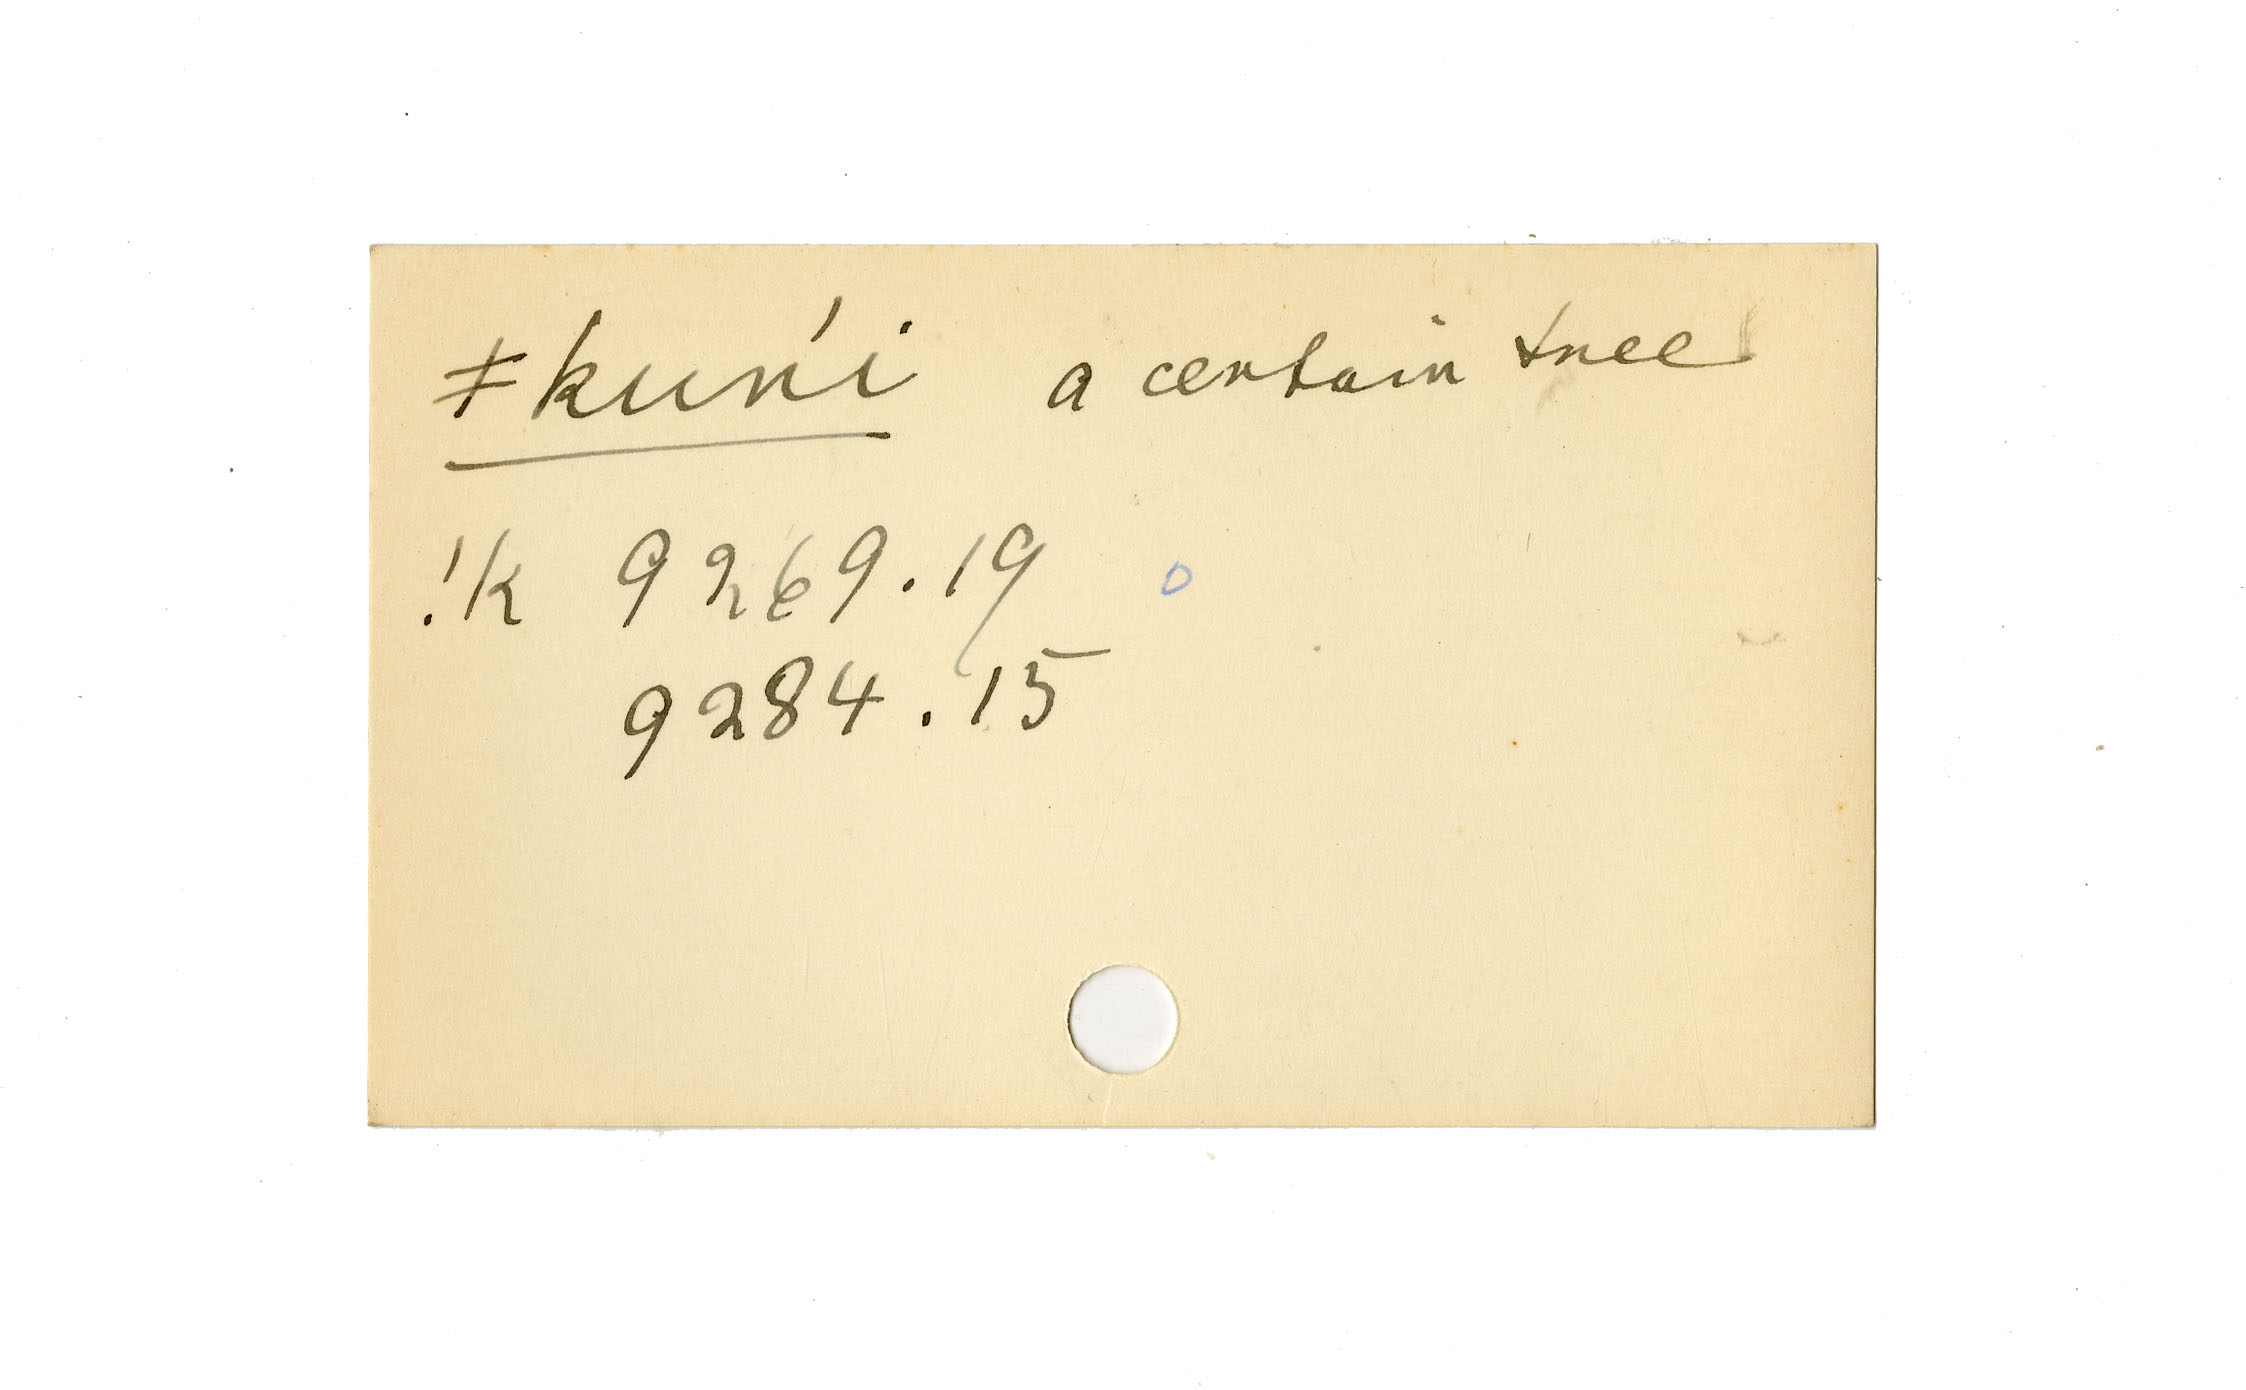 ǂkuńi a certain tree
!k 9269.19
9284.15